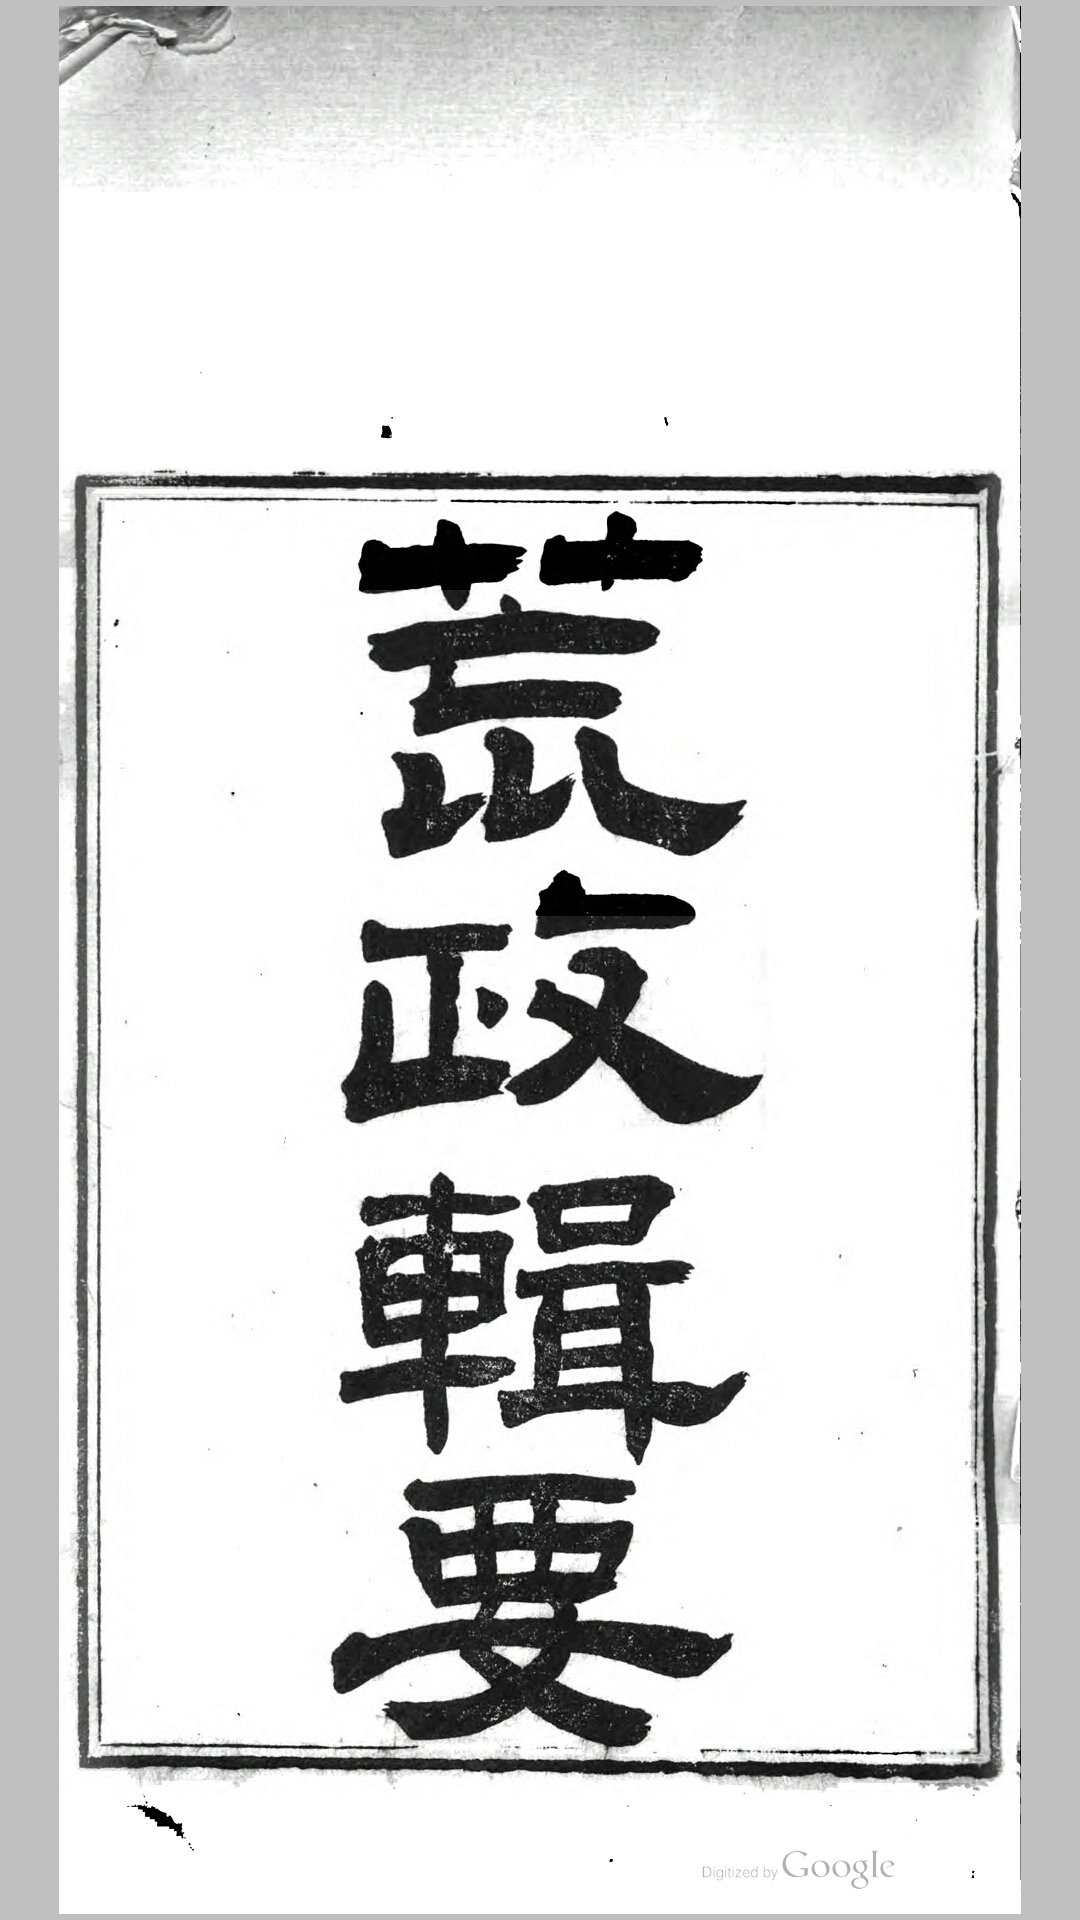 荒政輯要
Digitized by Google